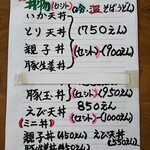 丼物(セット)○冷、温そばうどん
いか天丼
とり天丼 750えん
親子丼 (セット)→900えん
豚生姜丼
豚玉丼 (セット)→950えん
えび天丼 850えん
(セット)→1000えん
(ミニ丼)
親子丼 450えん えび天丼
豚生姜丼 450えん (550えん)